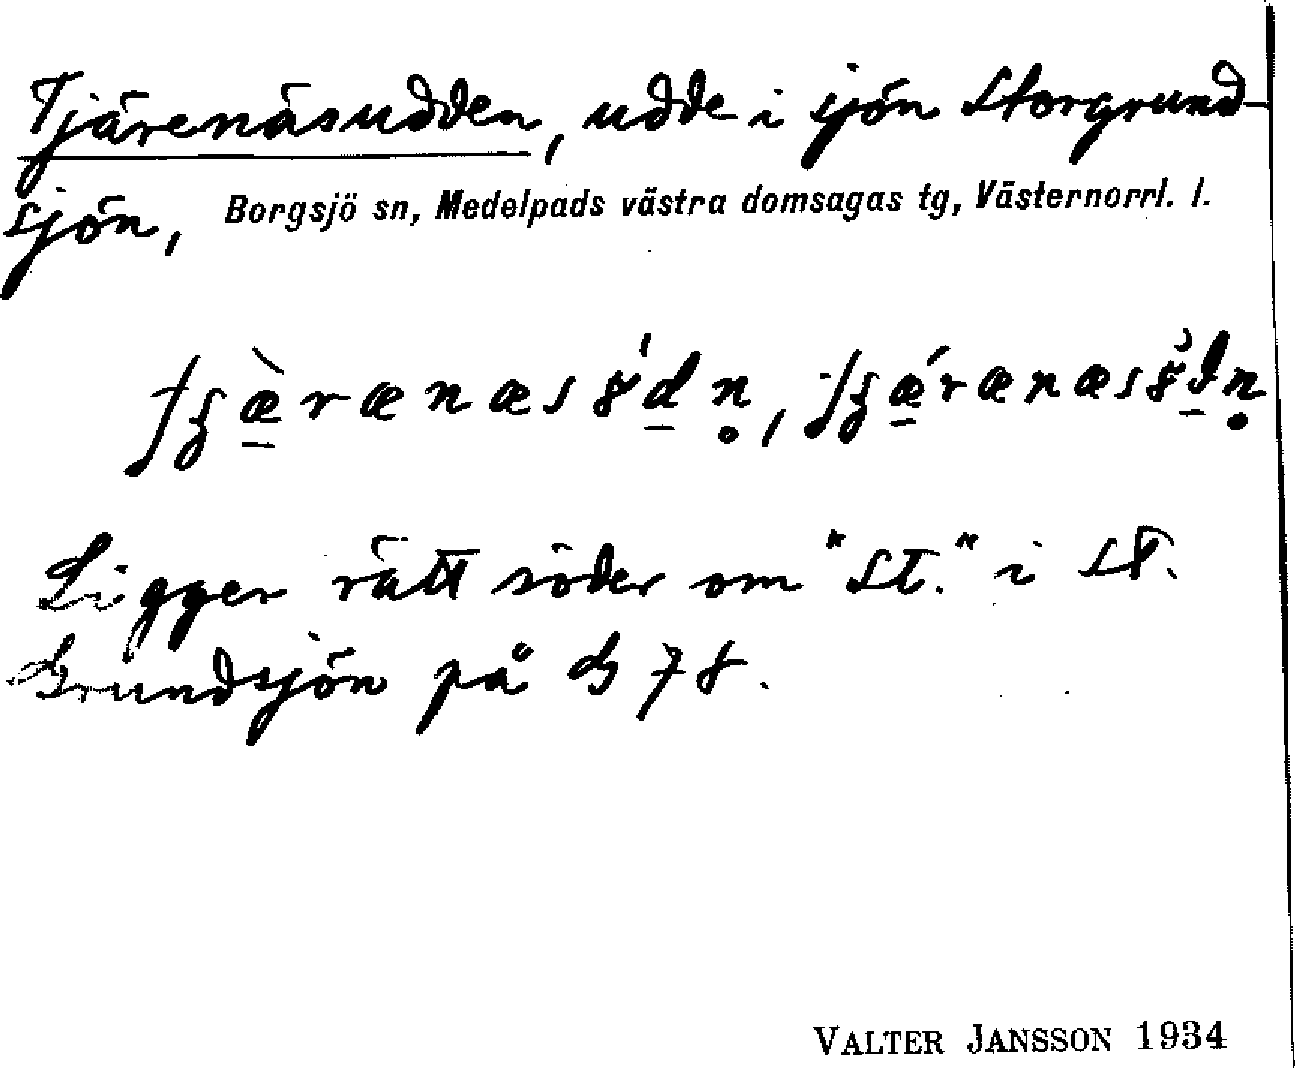 Tjärenäsudden, udde i sjön Storgrund-
sjön, Borgsjö sn, Medelpads västra domsagas tg, Västernorrl. l.
Ligger rätt söder om "St." i St.
Grundsjön på G 78.
VALTER JANSSON 1934